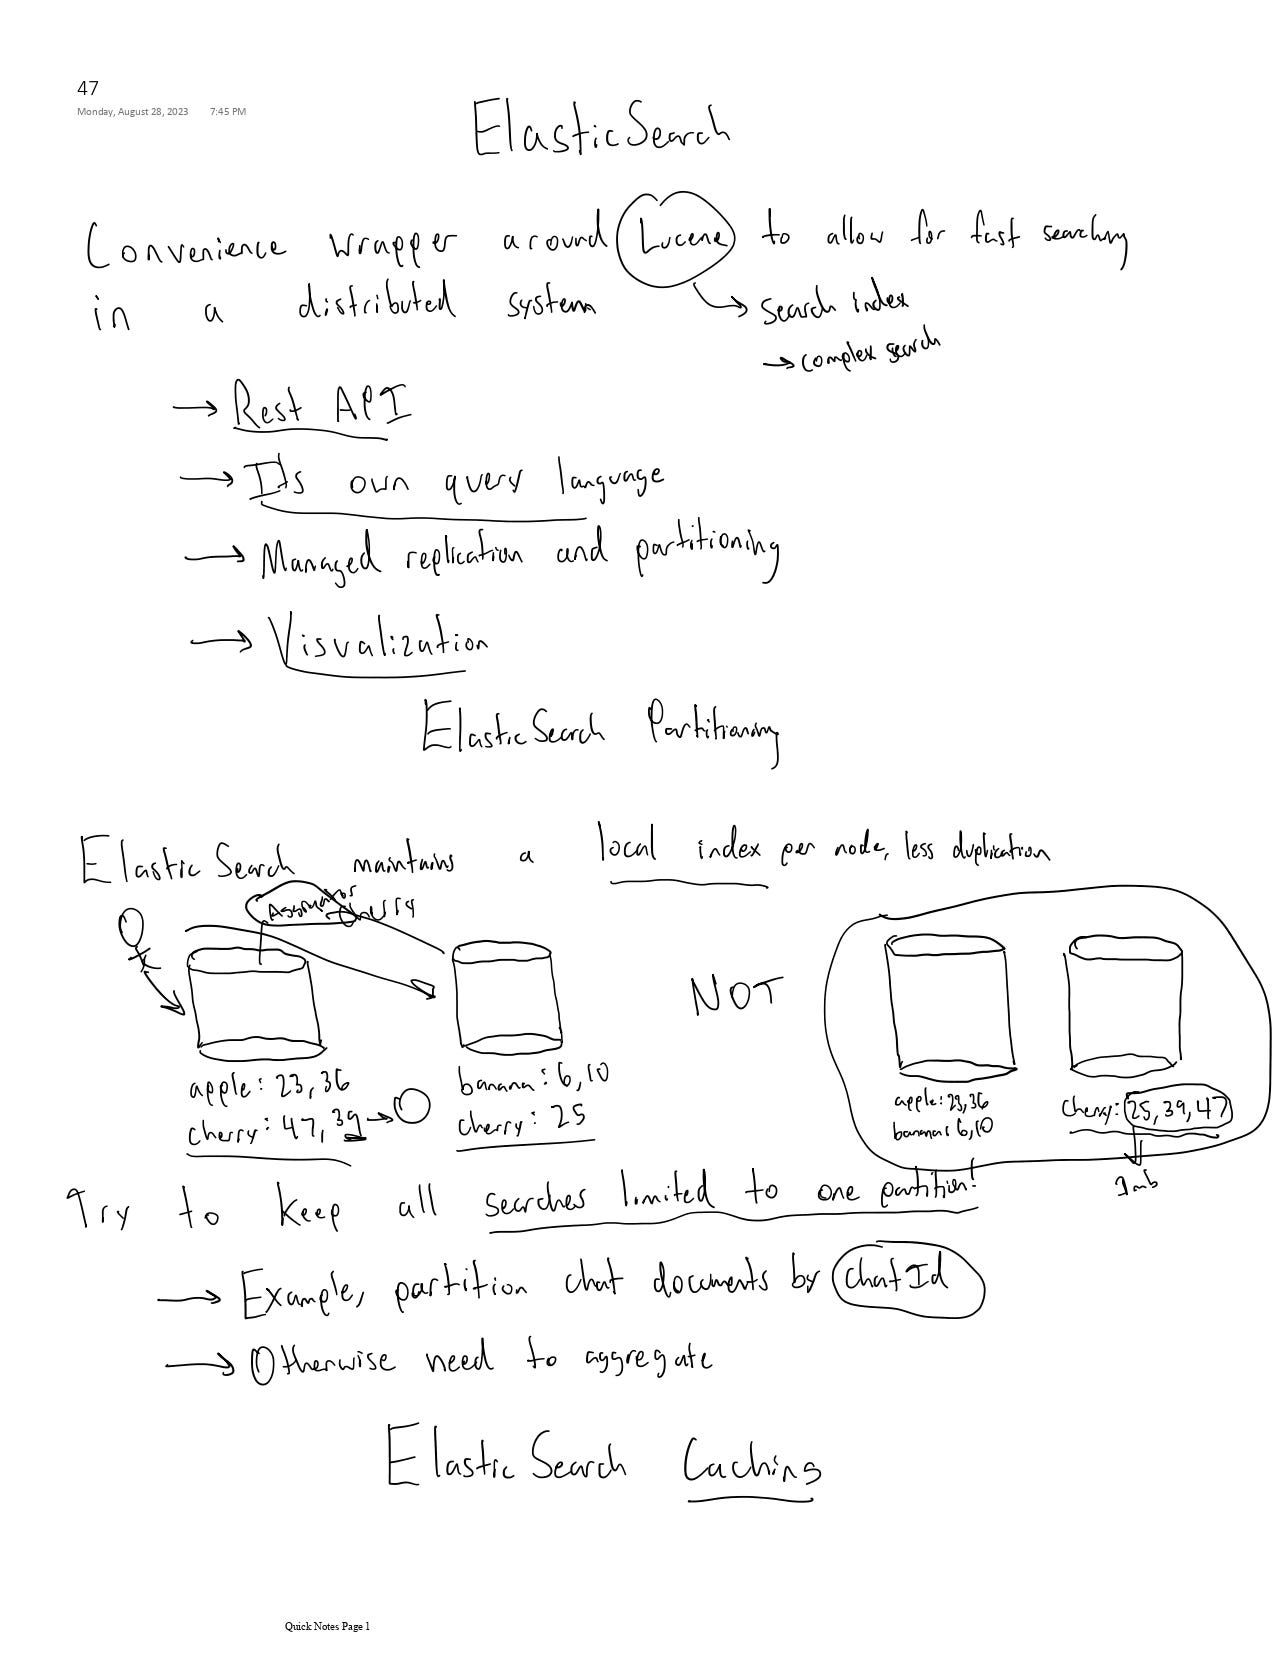 47
Monday, August 28, 2023 7:45 PM
ElasticSearch
Convenience wrapper around Lucene to allow for fast searching
in a distributed system
→ Search index
→ complex search
→ Rest API
→ Its own query language
→ Managed replication and partitioning
→ Visualization
ElasticSearch Partitioning
ElasticSearch maintains a local index per node, less duplication
cherry
NOT
apple: 23, 36
cherry: 47, 39 →
banana: 6, 10
cherry: 25
apple: 23, 36
banana: 6, 10
cherry: 25, 39, 47
Try to keep all searches limited to one partition!
→ Example, partition chat documents by chatId
→ Otherwise need to aggregate
ElasticSearch Caching
Quick Notes Page 1